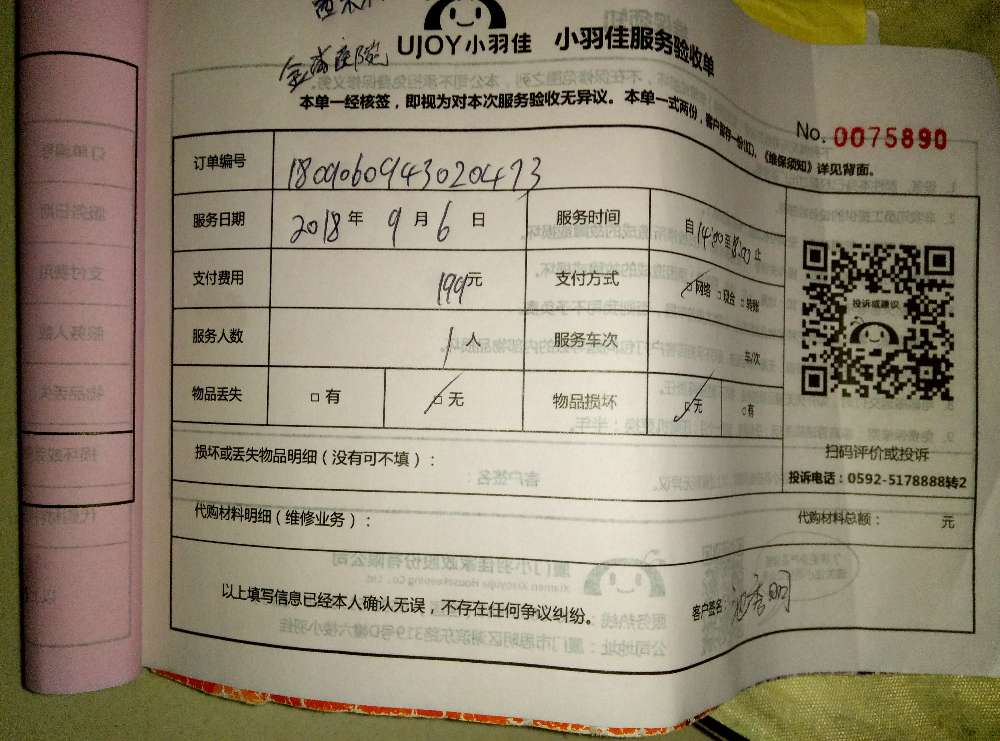 金 庭院
UJOY小羽佳 小羽佳服务验收单
本单一经核签，即视为对本次服务验收无异议。本单一式两份，客户留存一份，《维保须知》详见背面。
No. 0075890
订单编号 18090609430204 73
服务日期 2018 年 9 月 6 日 服务时间 自 14:00 至 18:00 止
支付费用 199 元 支付方式 □网络 □现金 □转账
服务人数 1 人 服务车次 车次
物品丢失 □ 有 □ 无 物品损坏 □无 □有
投诉或建议
扫码评价或投诉
投诉电话：0592-5178888转2
损坏或丢失物品明细（没有可不填）：
代购材料明细（维修业务）： 代购材料总额： 元
以上填写信息已经本人确认无误，不存在任何争议纠纷。 客户签名：